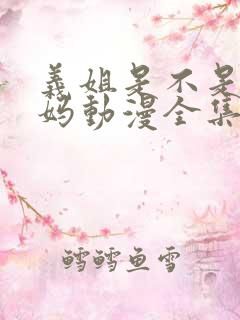 義姐是不是
妈動漫全集
鳕鳕鱼雪